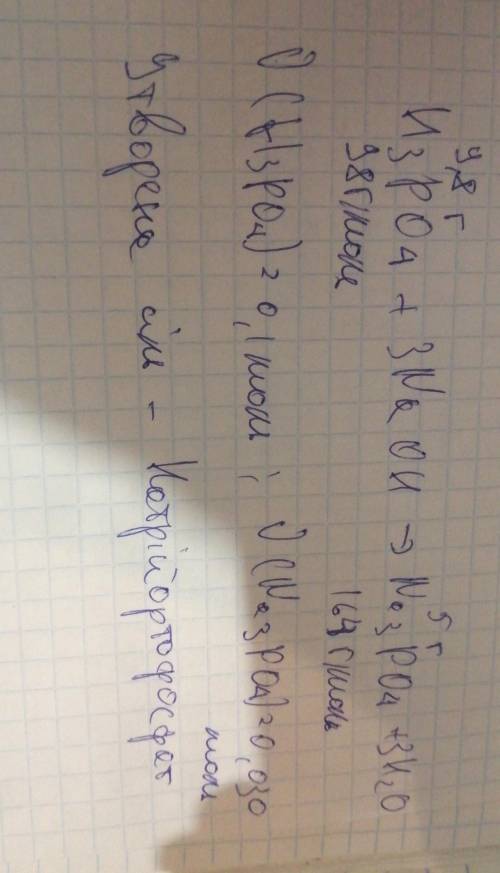 9,8 г 5 г
H3PO4 + 3NaOH → Na3PO4 + 3H2O
98 г/моль 164 г/моль
ν(H3PO4) = 0,1 моль; ν(Na3PO4) = 0,030
моль
Утворена сіль - Натрійортофосфат